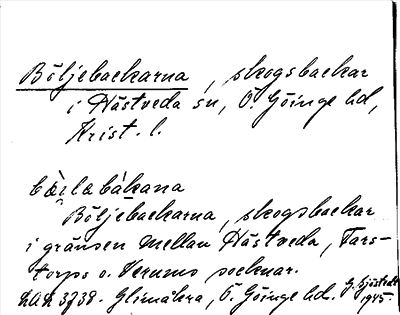 Böljebackarna, skogsbackar
i Hästveda sn, Ö. Göinge hd,
Krist. l.
bö̀iləbàkana
Böljebackarna, skogsbackar
i gränsen mellan Hästveda, Fars-
torps o. Verums socknar.
LAL 3738. Glimåkra, Ö. Göinge hd. G. Sjöstedt
1945.